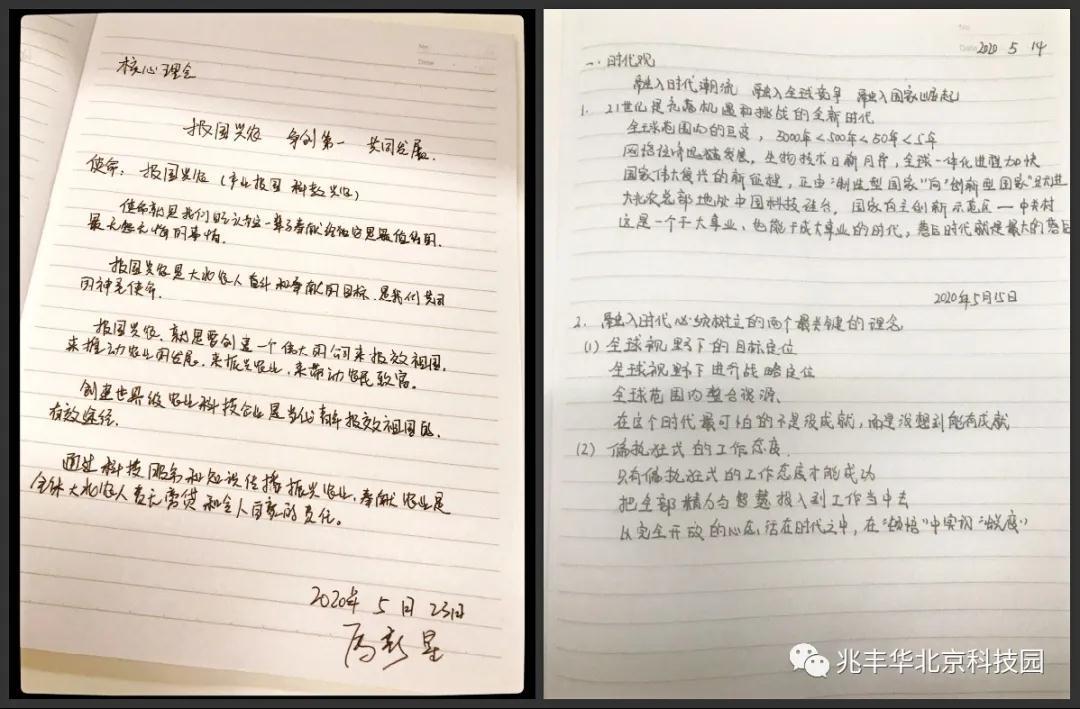 No.
Date
核心理念
报国兴农 争创第一 共同发展.
使命: 报国兴农 (产业报国 科教兴农)
使命就是我们所认为这一辈子奉献给它是最值得的.
最无怨无悔的事情.
报国兴农是大北农人奋斗和奉献的目标.是我们共同
的神圣使命.
报国兴农. 就是要创建一个伟大的公司来报效祖国.
来推动农业的发展.来振兴农业.来带动农民致富.
创建世界级农业科技企业是当代青年报效祖国的.
有效途径.
通过科技服务和知识传播振兴农业.奉献农业是
全体大北农人责无旁贷和令人自豪的责任。
2020年 5月 23日
No.
Date 2020 5 14
一. 时代观
融入时代潮流 融入全球竞争 融入国家崛起
1. 21世纪是充满机遇和挑战的全新时代
全球范围内的巨变, 3000年<500年<50年<5年
网络经济迅猛发展,生物技术日新月异,全球一体化进程加快
国家伟大复兴的新征程,正由"制造型国家"向"创新型国家"迈进
大北农总部地处中国科技硅谷, 国家自主创新示范区—中关村
这是一个干大事业、也能干成大事业的时代,落后时代就是最大的落后
2020年5月15日
2. 融入时代必须树立的两个最关键的理念
(1) 全球视野下的目标定位
全球视野下进行战略定位
全球范围内整合资源、
在这个时代最可怕的不是没成就,而是没想到能有成就
(2) 偏执狂式的工作态度.
只有偏执狂式的工作态度才能成功
把全部精力与智慧投入到工作当中去
以完全开放的心态活在时代之中,在"劫悟"中实现"蜕变"
兆丰华北京科技园